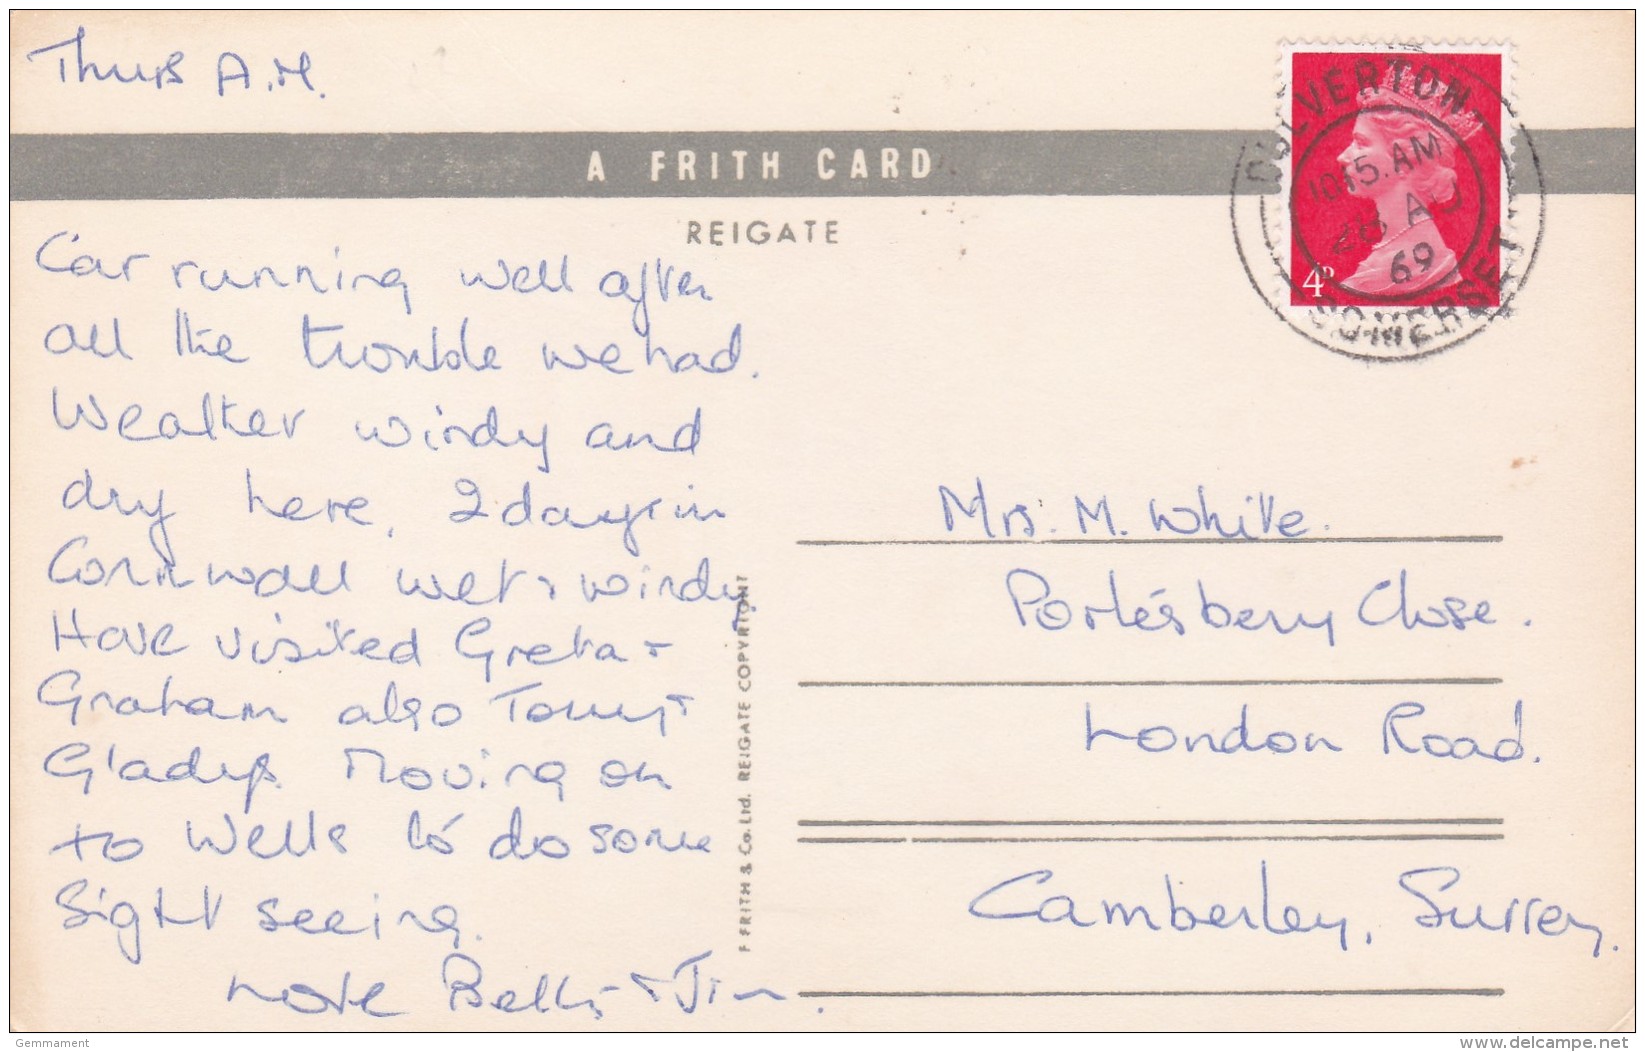 Thurs A.M.
A FRITH CARD
REIGATE
Car running well after
all the trouble we had.
Weather windy and
dry here, 2 days in
Cornwall wet & windy.
Have visited Greta &
Graham also Tony &
Gladys. Moving on
to Wells to do some
sight seeing.
Love Betty & Jim.
F FRITH & Co. Ltd. REIGATE COPYRIGHT
4D
10.15. AM
28 AU
69
SOMERSET
Mrs. M. White.
Portesbery Close.
London Road.
Camberley, Surrey.
Gemmament
www.delcampe.net